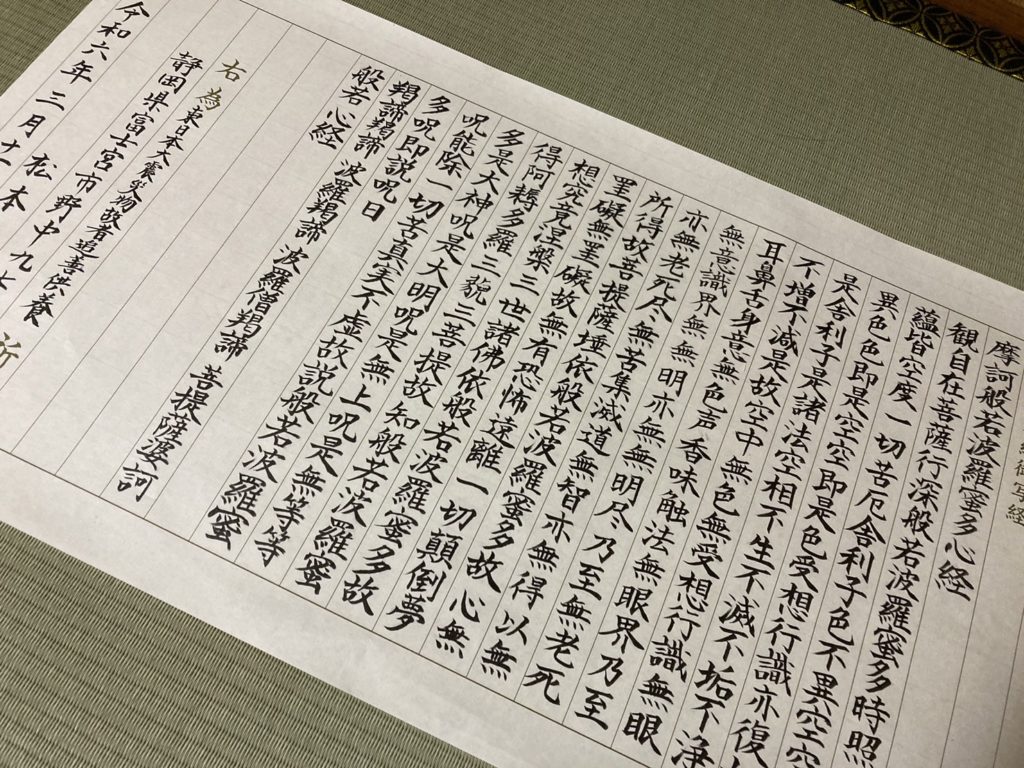 御写経
摩訶般若波羅蜜多心経
観自在菩薩行深般若波羅蜜多時照
蘊皆空度一切苦厄舎利子色不異空空
異色色即是空空即是色受想行識亦復
是舎利子是諸法空相不生不滅不垢不浄
不増不減是故空中無色無受想行識無眼
耳鼻舌身意無色声香味触法無眼界乃至
無意識界無無明亦無無明尽乃至無老死
亦無老死尽無苦集滅道無智亦無得以無
所得故菩提薩埵依般若波羅蜜多故心無
罣礙無罣礙故無有恐怖遠離一切顛倒夢
想究竟涅槃三世諸佛依般若波羅蜜多故
得阿耨多羅三藐三菩提故知般若波羅蜜
多是大神呪是大明呪是無上呪是無等等
呪能除一切苦真実不虚故説般若波羅蜜
多呪即説呪曰
羯諦羯諦 波羅羯諦 波羅僧羯諦 菩提薩婆訶
般若心経
右為東日本大震災物故者追善供養 祈
静岡県富士宮市野中九七
松本
令和六年 三月十一